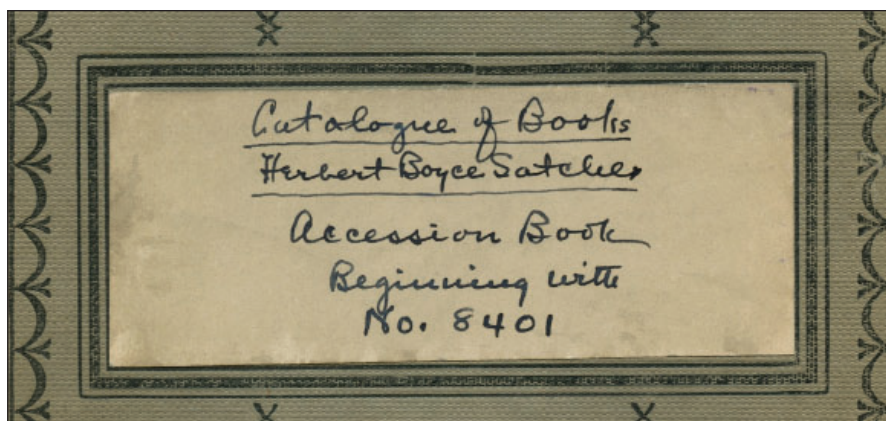 Catalogue of Books
Herbert Boyce Satcher
Accession Book
Beginning with
No. 8401